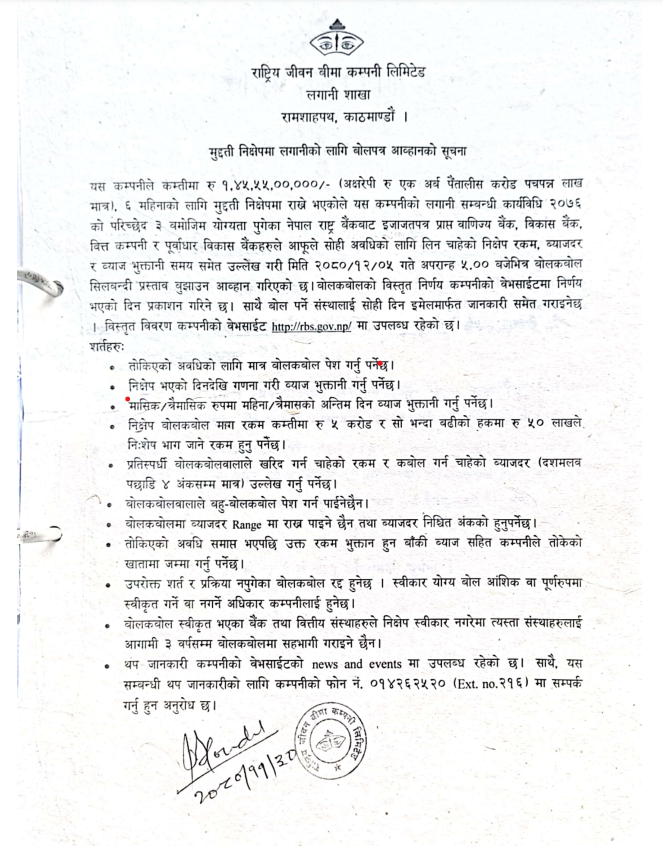 राष्ट्रिय जीवन बीमा कम्पनी लिमिटेड
लगानी शाखा
रामशाहपथ, काठमाण्डौं ।
मुद्दती निक्षेपमा लगानीको लागि बोलपत्र आव्हानको सूचना
यस कम्पनीले कम्तीमा रु १,४५,५५,००,०००/- (अक्षरेपी रु एक अर्ब पैंतालीस करोड पचपन्न लाख
मात्र), ६ महिनाको लागि मुद्दती निक्षेपमा राख्ने भएकोले यस कम्पनीको लगानी सम्बन्धी कार्यविधि २०७६
को परिच्छेद ३ बमोजिम योग्यता पुगेका नेपाल राष्ट्र बैंकबाट इजाजतपत्र प्राप्त वाणिज्य बैंक, विकास बैंक,
वित्त कम्पनी र पूर्वाधार विकास बैंकहरुले आफूले सोही अवधिको लागि लिन चाहेको निक्षेप रकम, ब्याजदर
र ब्याज भुक्तानी समय समेत उल्लेख गरी मिति २०८०/१२/०५ गते अपरान्ह ५.०० बजेभित्र बोलकबोल
सिलवन्दी प्रस्ताव वुझाउन आव्हान गरिएको छ। बोलकबोलको विस्तृत निर्णय कम्पनीको वेभसाईटमा निर्णय
भएको दिन प्रकाशन गरिने छ। साथै बोल पर्ने संस्थालाई सोही दिन इमेलमार्फत जानकारी समेत गराइनेछ
। विस्तृत विवरण कम्पनीको वेभसाईट http://rbs.gov.np/ मा उपलब्ध रहेको छ।
शर्तहरुः
• तोकिएको अवधिको लागि मात्र बोलकबोल पेश गर्नु पर्नेछ।
• निक्षेप भएको दिनदेखि गणना गरी ब्याज भुक्तानी गर्नु पर्नेछ।
• मासिक/त्रैमासिक रुपमा महिना/त्रैमासको अन्तिम दिन ब्याज भुक्तानी गर्नु पर्नेछ।
• निक्षेप बोलकबोल माग रकम कम्तीमा रु ५ करोड र सो भन्दा बढीको हकमा रु ५० लाखले
निःशेष भाग जाने रकम हुनु पर्नेछ।
• प्रतिस्पर्धी बोलकबोलवालाले खरिद गर्न चाहेको रकम र कबोल गर्न चाहेको ब्याजदर (दशमलव
पछाडि ४ अंकसम्म मात्र) उल्लेख गर्नु पर्नेछ।
• बोलकबोलवालाले बहु-बोलकबोल पेश गर्न पाईनेछैन।
• बोलकबोलमा ब्याजदर Range मा राख्न पाइने छैन तथा ब्याजदर निश्चित अंकको हुनुपर्नेछ।
• तोकिएको अवधि समाप्त भएपछि उक्त रकम भुक्तान हुन बाँकी ब्याज सहित कम्पनीले तोकेको
खातामा जम्मा गर्नु पर्नेछ।
• उपरोक्त शर्त र प्रक्रिया नपुगेका बोलकबोल रद्द हुनेछ । स्वीकार योग्य बोल आंशिक वा पूर्णरुपमा
स्वीकृत गर्ने वा नगर्ने अधिकार कम्पनीलाई हुनेछ।
• बोलकबोल स्वीकृत भएका बैंक तथा वित्तीय संस्थाहरुले निक्षेप स्वीकार नगरेमा त्यस्ता संस्थाहरुलाई
आगामी ३ वर्षसम्म बोलकबोलमा सहभागी गराइने छैन।
• थप जानकारी कम्पनीको वेभसाईटको news and events मा उपलब्ध रहेको छ। साथै, यस
सम्बन्धी थप जानकारीको लागि कम्पनीको फोन नं. ०१४२६२५२० (Ext. no.२१६) मा सम्पर्क
गर्नु हुन अनुरोध छ।
राष्ट्रिय जीवन बीमा कम्पनी लिमिटेड
२०८०/११/३०